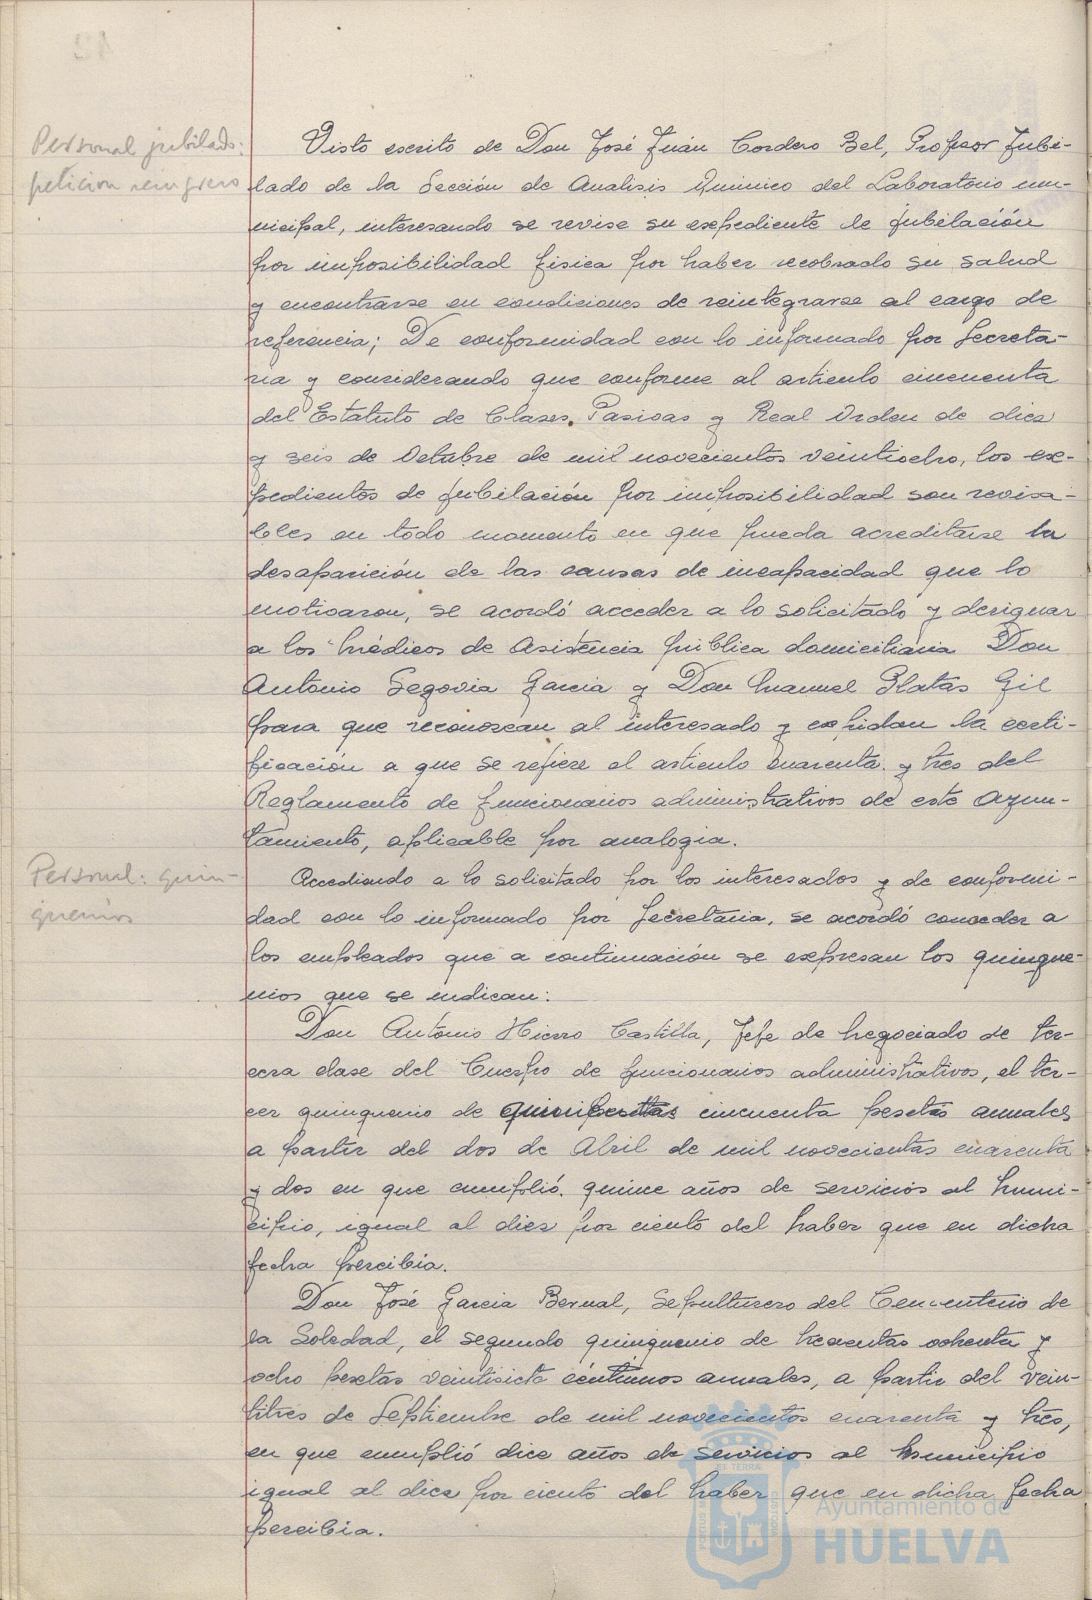 Personal jubilado:
petición reingreso
Visto escrito de Don José Juán Cordero Bel, Profesor Jubi-
lado de la Sección de Analisis Quimico del Laboratorio mu-
nicipal, interesando se revise su expediente de jubilación
por imposibilidad fisica por haber recobrado su salud
y encontrarse en condiciones de reintegrarse al cargo de
referencia; De conformidad con lo informado por Secreta-
ria y considerando que conforme al articulo cincuenta
del Estatuto de Clases Pasivas y Real Orden de diez
y seis de Octubre de mil novecientos veintiocho, los ex-
pedientes de jubilación por imposibilidad son revisa-
bles en todo momento en que pueda acreditarse la
desaparición de las causas de incapacidad que lo
motivaron, se acordó acceder a lo solicitado y designar
a los Médicos de Asistencia pública domiciliaria Don
Antonio Segovia Garcia y Don Manuel Platas Gil
para que reconozcan al interesado y expidan la certi-
ficación a que se refiere el articulo cuarenta y tres del
Reglamento de funcionarios administrativos de este Ayun-
tamiento, aplicable por analogia.
Personal: quin-
quenios
Accediendo a lo solicitado por los interesados y de conformi-
dad con lo informado por Secretaria, se acordó conceder a
los empleados que a continuación se expresan los quinque-
nios que se indican:
Don Antonio Hierro Castilla, Jefe de Negociado de ter-
cera clase del Cuerpo de funcionarios administrativos, el ter-
cer quinquenio de cincuenta pesetas anuales
a partir del dos de Abril de mil novecientas cuarenta
y dos en que cumplió quince años de servicios al Muni-
cipio, igual al diez por ciento del haber que en dicha
fecha percibia.
Don José Garcia Bernal, Sepulturero del Cementerio de
la Soledad, el segundo quinquenio de trecientas ochenta y
ocho pesetas veintisiete céntimos anuales, a partir del vein-
titres de Septiembre de mil novecientos cuarenta y tres,
en que cumplió diez años de servicios al Municipio
igual al diez por ciento del haber que en dicha fecha
percibia.
Ayuntamiento de
HUELVA